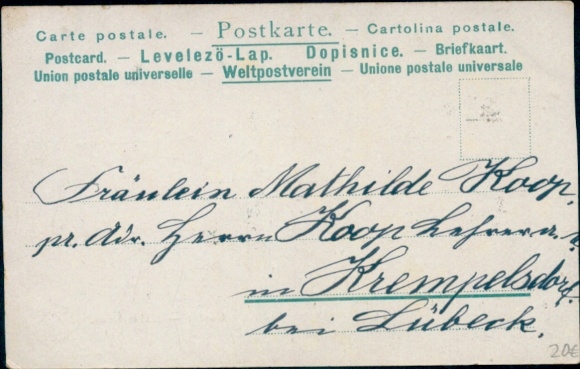 Carte postale. — Postkarte. — Cartolina postale.
Postcard. — Levelezö-Lap. Dopisnice. — Briefkaart.
Union postale universelle — Weltpostverein — Unione postale universale
Fräulein Mathilde Koop,
pr. Adr. Herrn Koop Lehrer a.
in Krempelsdorf.
bei Lübeck.
20€